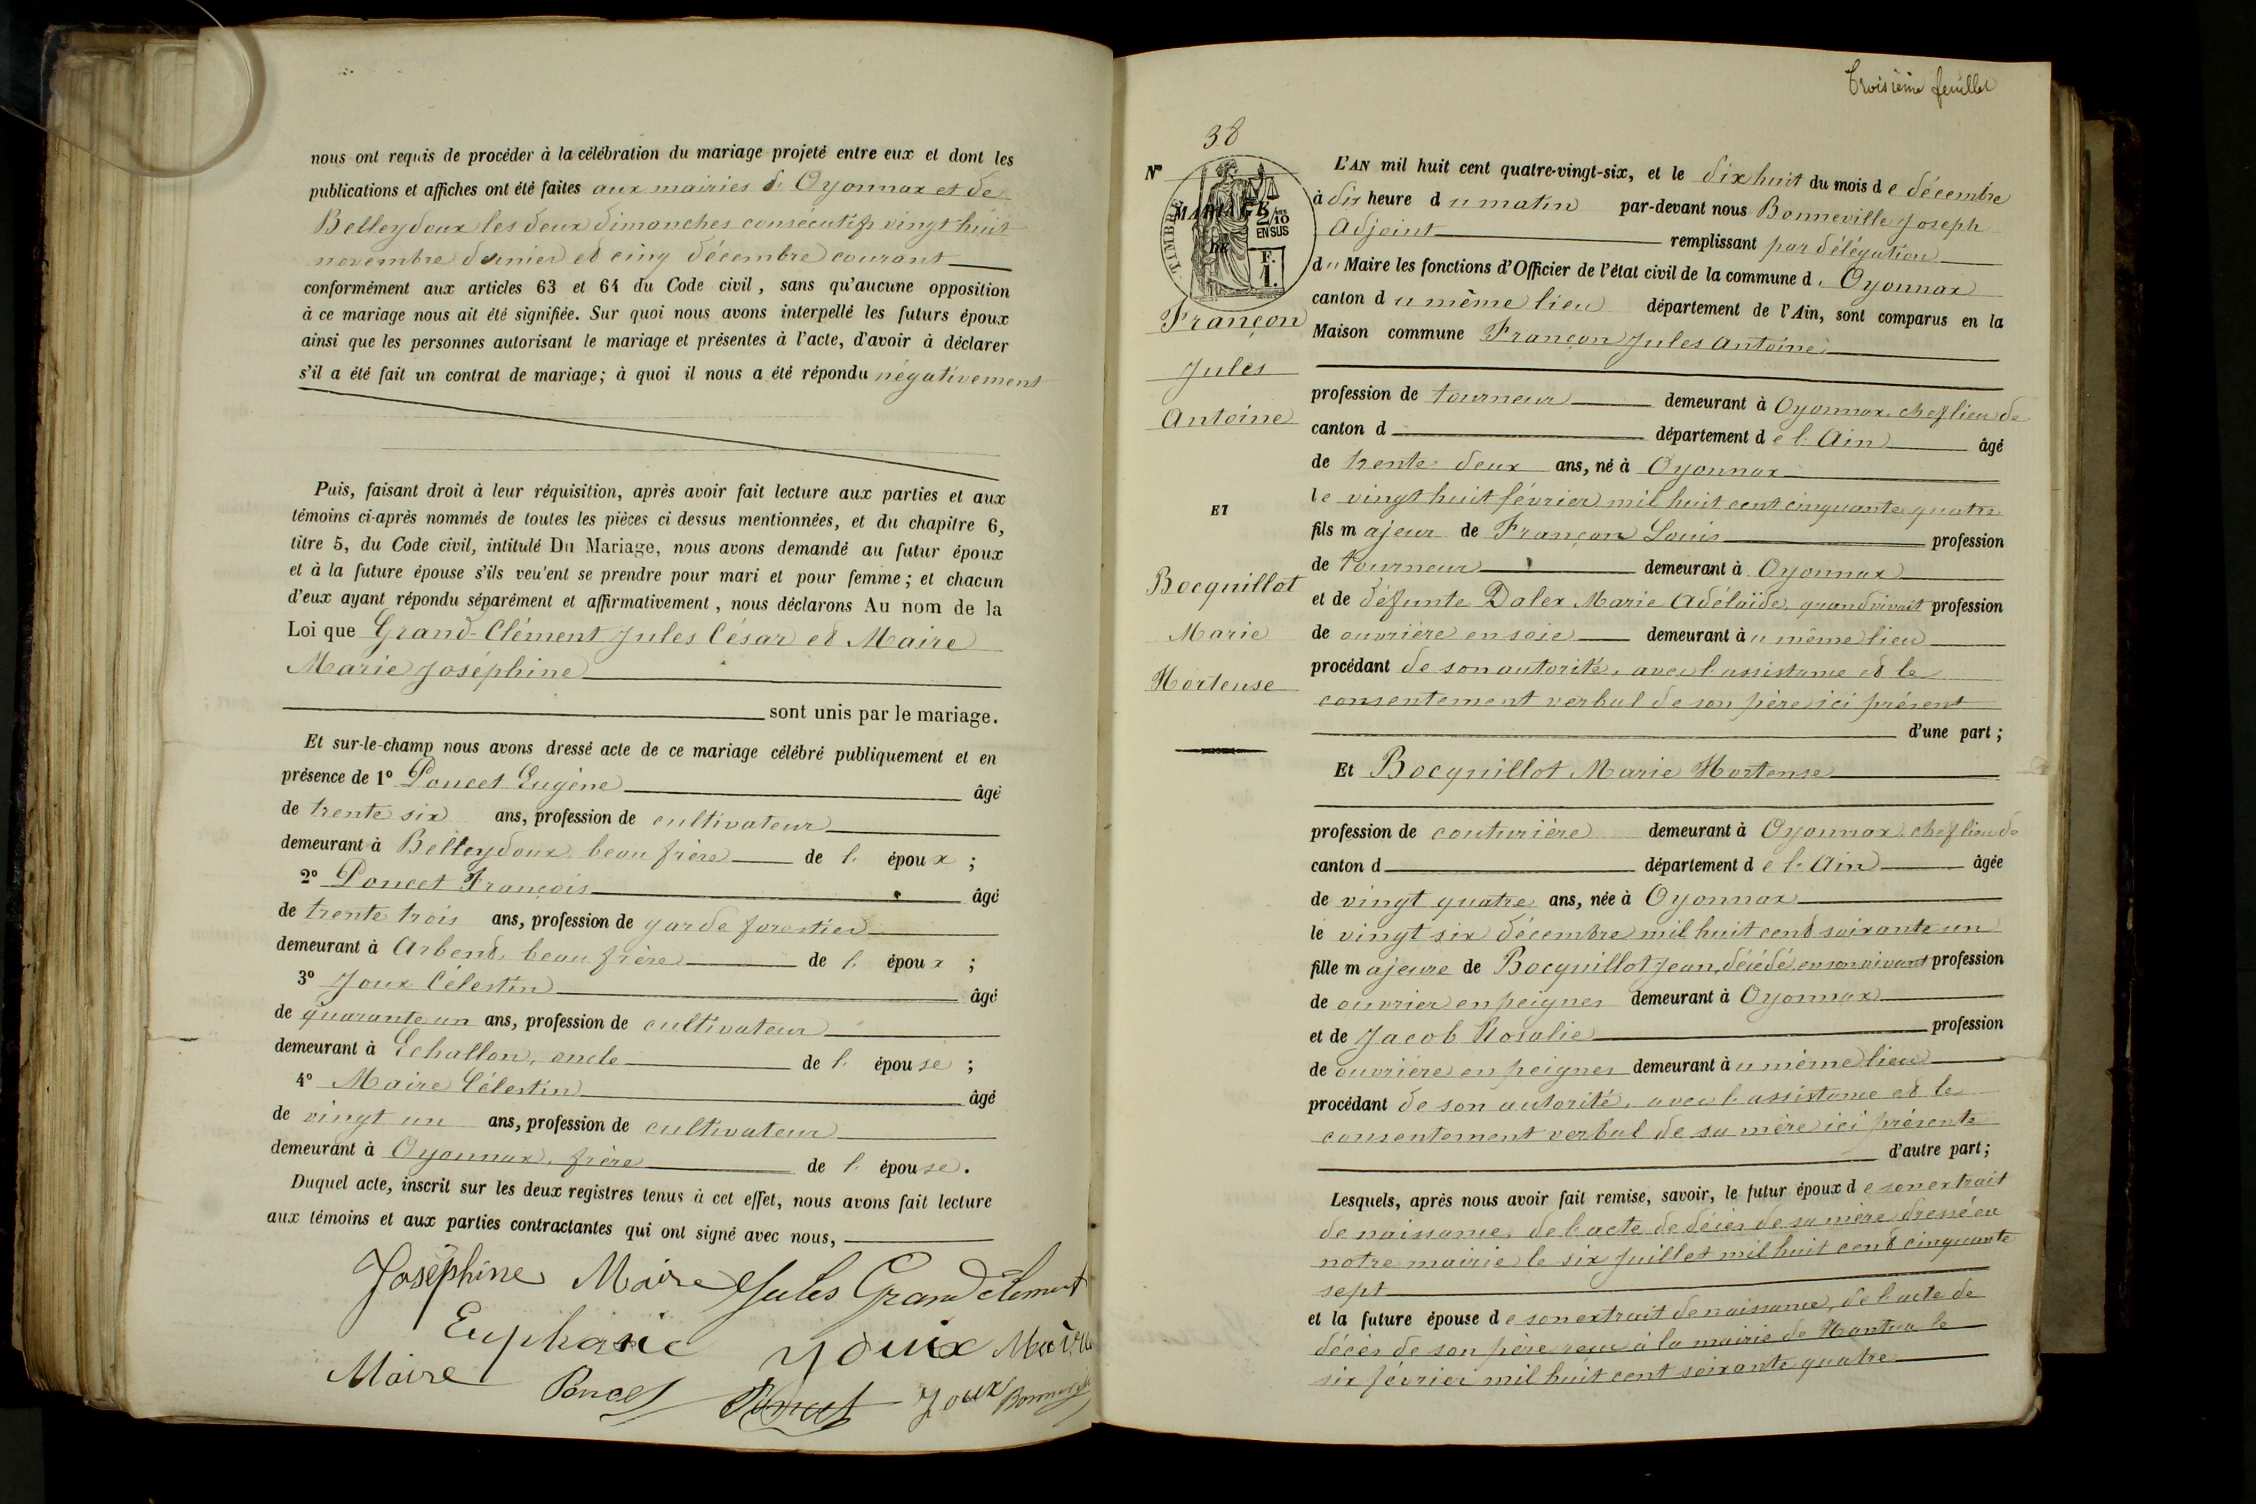 nous ont requis de procéder à la célébration du mariage projeté entre eux et dont les
publications et affiches ont été faites aux mairies d. Oyonnax et de
Belleydoux les deux dimanches consécutifs vingt huit
novembre dernier et cinq décembre courant
conformément aux articles 63 et 64 du Code civil, sans qu'aucune opposition
à ce mariage nous ait été signifiée. Sur quoi nous avons interpellé les futurs époux
ainsi que les personnes autorisant le mariage et présentes à l'acte, d'avoir à déclarer
s'il a été fait un contrat de mariage; à quoi il nous a été répondu négativement
Puis, faisant droit à leur réquisition, après avoir fait lecture aux parties et aux
témoins ci-après nommés de toutes les pièces ci dessus mentionnées, et du chapitre 6,
titre 5, du Code civil, intitulé Du Mariage, nous avons demandé au futur époux
et à la future épouse s'ils veu'ent se prendre pour mari et pour femme; et chacun
d'eux ayant répondu séparément et affirmativement, nous déclarons Au nom de la
Loi que Grand-Clément Jules César et Maire
Marie Joséphine
sont unis par le mariage.
Et sur-le-champ nous avons dressé acte de ce mariage célébré publiquement et en
présence de 1º Poncet Eugène âgé
de trente six ans, profession de cultivateur
demeurant à Belleydoux, beau frère de l. époux ;
2º Poncet François âgé
de trente trois ans, profession de garde forestier
demeurant à Arbent, beau frère de l. époux ;
3º Joux Célestin âgé
de quarante un ans, profession de cultivateur
demeurant à Echallon, oncle de l. épouse ;
4º Maire Célestin âgé
de vingt un ans, profession de cultivateur
demeurant à Oyonnax, frère de l. épouse.
Duquel acte, inscrit sur les deux registres tenus à cet effet, nous avons fait lecture
aux témoins et aux parties contractantes qui ont signé avec nous,
Joséphine Maire Jules Grandclément
Euphasie Youix Maire
Maire Poncet Poncet Joux
Troisième feuillet
38
Nº
MARIAGE
DE
TIMBRE
2/10
EN SUS
F.
1.
Françon
Jules
Antoine
ET
Bocquillot
Marie
Hortense
L'AN mil huit cent quatre-vingt-six, et le dix huit du mois de décembre
à dix heure du matin par-devant nous Bonneville Joseph
Adjoint remplissant par délégation
du Maire les fonctions d'Officier de l'état civil de la commune d. Oyonnax
canton du même lieu département de l'Ain, sont comparus en la
Maison commune Françon Jules Antoine
profession de tourneur demeurant à Oyonnax, chef lieu de
canton d département de l. Ain âgé
de trente deux ans, né à Oyonnax
le vingt huit février mil huit cent cinquante quatre
fils majeur de Françon Louis profession
de tourneur demeurant à Oyonnax
et de défunte Dalex Marie Adélaïde, quand vivait profession
de ouvrière en soie demeurant àu même lieu
procédant de son autorité, avec l'assistance et le
consentement verbal de son père ici présent
d'une part ;
Et Bocquillot Marie Hortense
profession de couturière demeurant à Oyonnax, chef lieu de
canton d département de l. Ain âgée
de vingt quatre ans, née à Oyonnax
le vingt six décembre mil huit cent soixante un
fille majeure de Bocquillot Jean, décédé, en son vivant profession
de ouvrier en peignes demeurant à Oyonnax
et de Jacob Rosalie profession
de ouvrière en peignes demeurant àu même lieu
procédant de son autorité, avec l'assistance et le
consentement verbal de sa mère ici présente
d'autre part;
Lesquels, après nous avoir fait remise, savoir, le futur époux de son extrait
de naissance, de l'acte de décès de sa mère dressé en
notre mairie le six juillet mil huit cent cinquante
sept
et la future épouse de son extrait de naissance, de l'acte de
décès de son père reçu à la mairie de Nantua le
six février mil huit cent soixante quatre